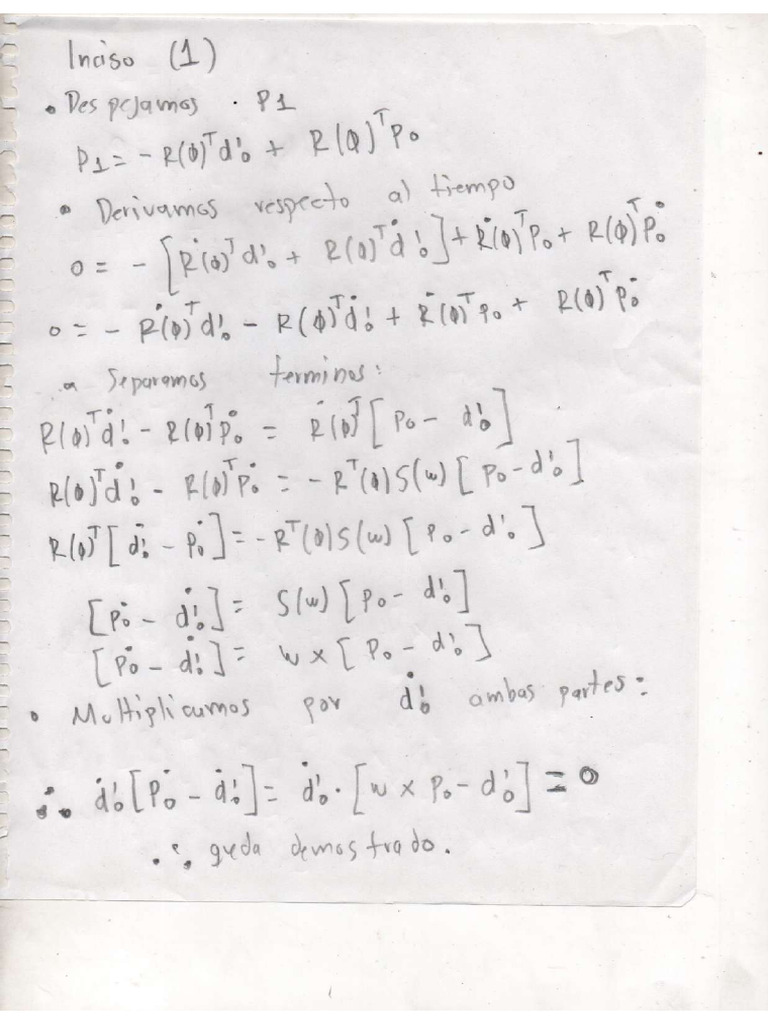 Inciso (1)
• Despejamos · P1
P1 = - R(φ)ᵀd₀¹ + R(φ)ᵀP₀
• Derivamos respecto al tiempo
0 = - [Ṙ(φ)ᵀd₀¹ + R(φ)ᵀḋ₀¹] + Ṙ(φ)ᵀP₀ + R(φ)ᵀṖ₀
0 = - Ṙ(φ)ᵀd₀¹ - R(φ)ᵀḋ₀¹ + Ṙ(φ)ᵀP₀ + R(φ)ᵀṖ₀
• Separamos terminos:
R(φ)ᵀḋ₀¹ - R(φ)ᵀṖ₀ = Ṙ(φ)ᵀ[P₀ - d₀¹]
R(φ)ᵀḋ₀¹ - R(φ)ᵀṖ₀ = - Rᵀ(φ)S(w)[P₀ - d₀¹]
R(φ)ᵀ[ḋ₀¹ - Ṗ₀] = - Rᵀ(φ)S(w)[P₀ - d₀¹]
[Ṗ₀ - ḋ₀¹] = S(w)[P₀ - d₀¹]
[Ṗ₀ - ḋ₀¹] = w × [P₀ - d₀¹]
• Multiplicamos por ḋ₀¹ ambas partes:
∴ ḋ₀¹[Ṗ₀ - ḋ₀¹] = ḋ₀¹ · [w × P₀ - d₀¹] = 0
∴ queda demostrado.